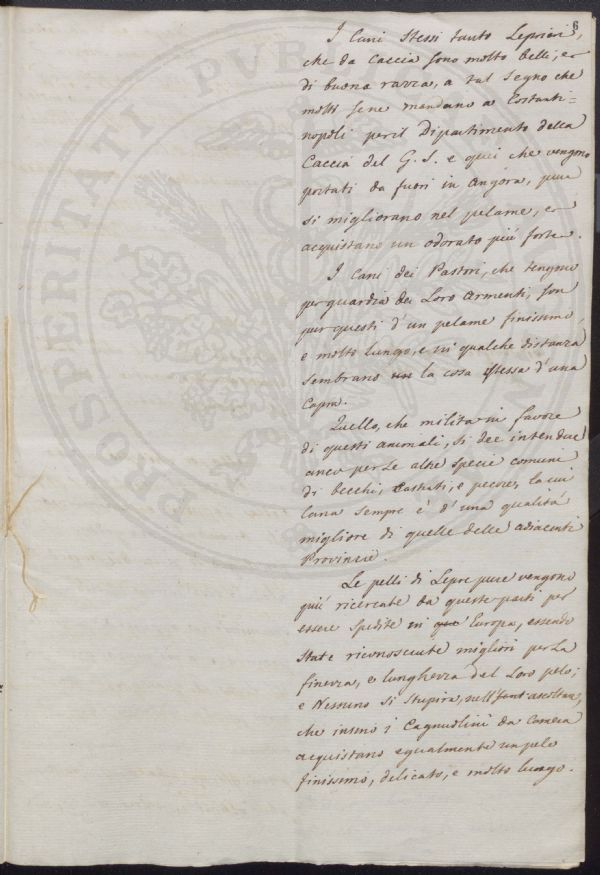 6
I Cani stessi tanto Leprieri,
che da Caccia sono molto belli, e
di buona razza, a tal segno che
molti sene mandano a Costanti=
nopoli per il Dipartimento della
Caccia del G. S. e quei che vengono
portati da fuori in Angora, pure
si migliorano nel pelame, e
acquistano un odorato più forte.
I Cani dei Pastori, che tengono
per guardia dei Loro armenti, son
pur questi d'un pelame finissimo,
e molto lungo, e in qualche distanza
sembrano la cosa stessa d'una
Capra.
Quello, che milita in favore
di questi animali, si dee intendere
anco per Le altre specie comuni
di becchi, Castrati, e pecore, la cui
lana sempre é d'una qualitá
migliore di quelle delle adiacenti
Provincie.
Le pelli di Lepre pure vengono
più ricercate da queste parti per
essere spedite in Europa, essendo
state riconosciute migliori per La
finezza, e lunghezza del Loro pelo;
e Nessuno si stupirà, nell'
che insino i Cagnuolini da Camera
acquistano egualmente un pelo
finissimo, delicato, e molto lungo.
PROSPERITATI PUBLICAE